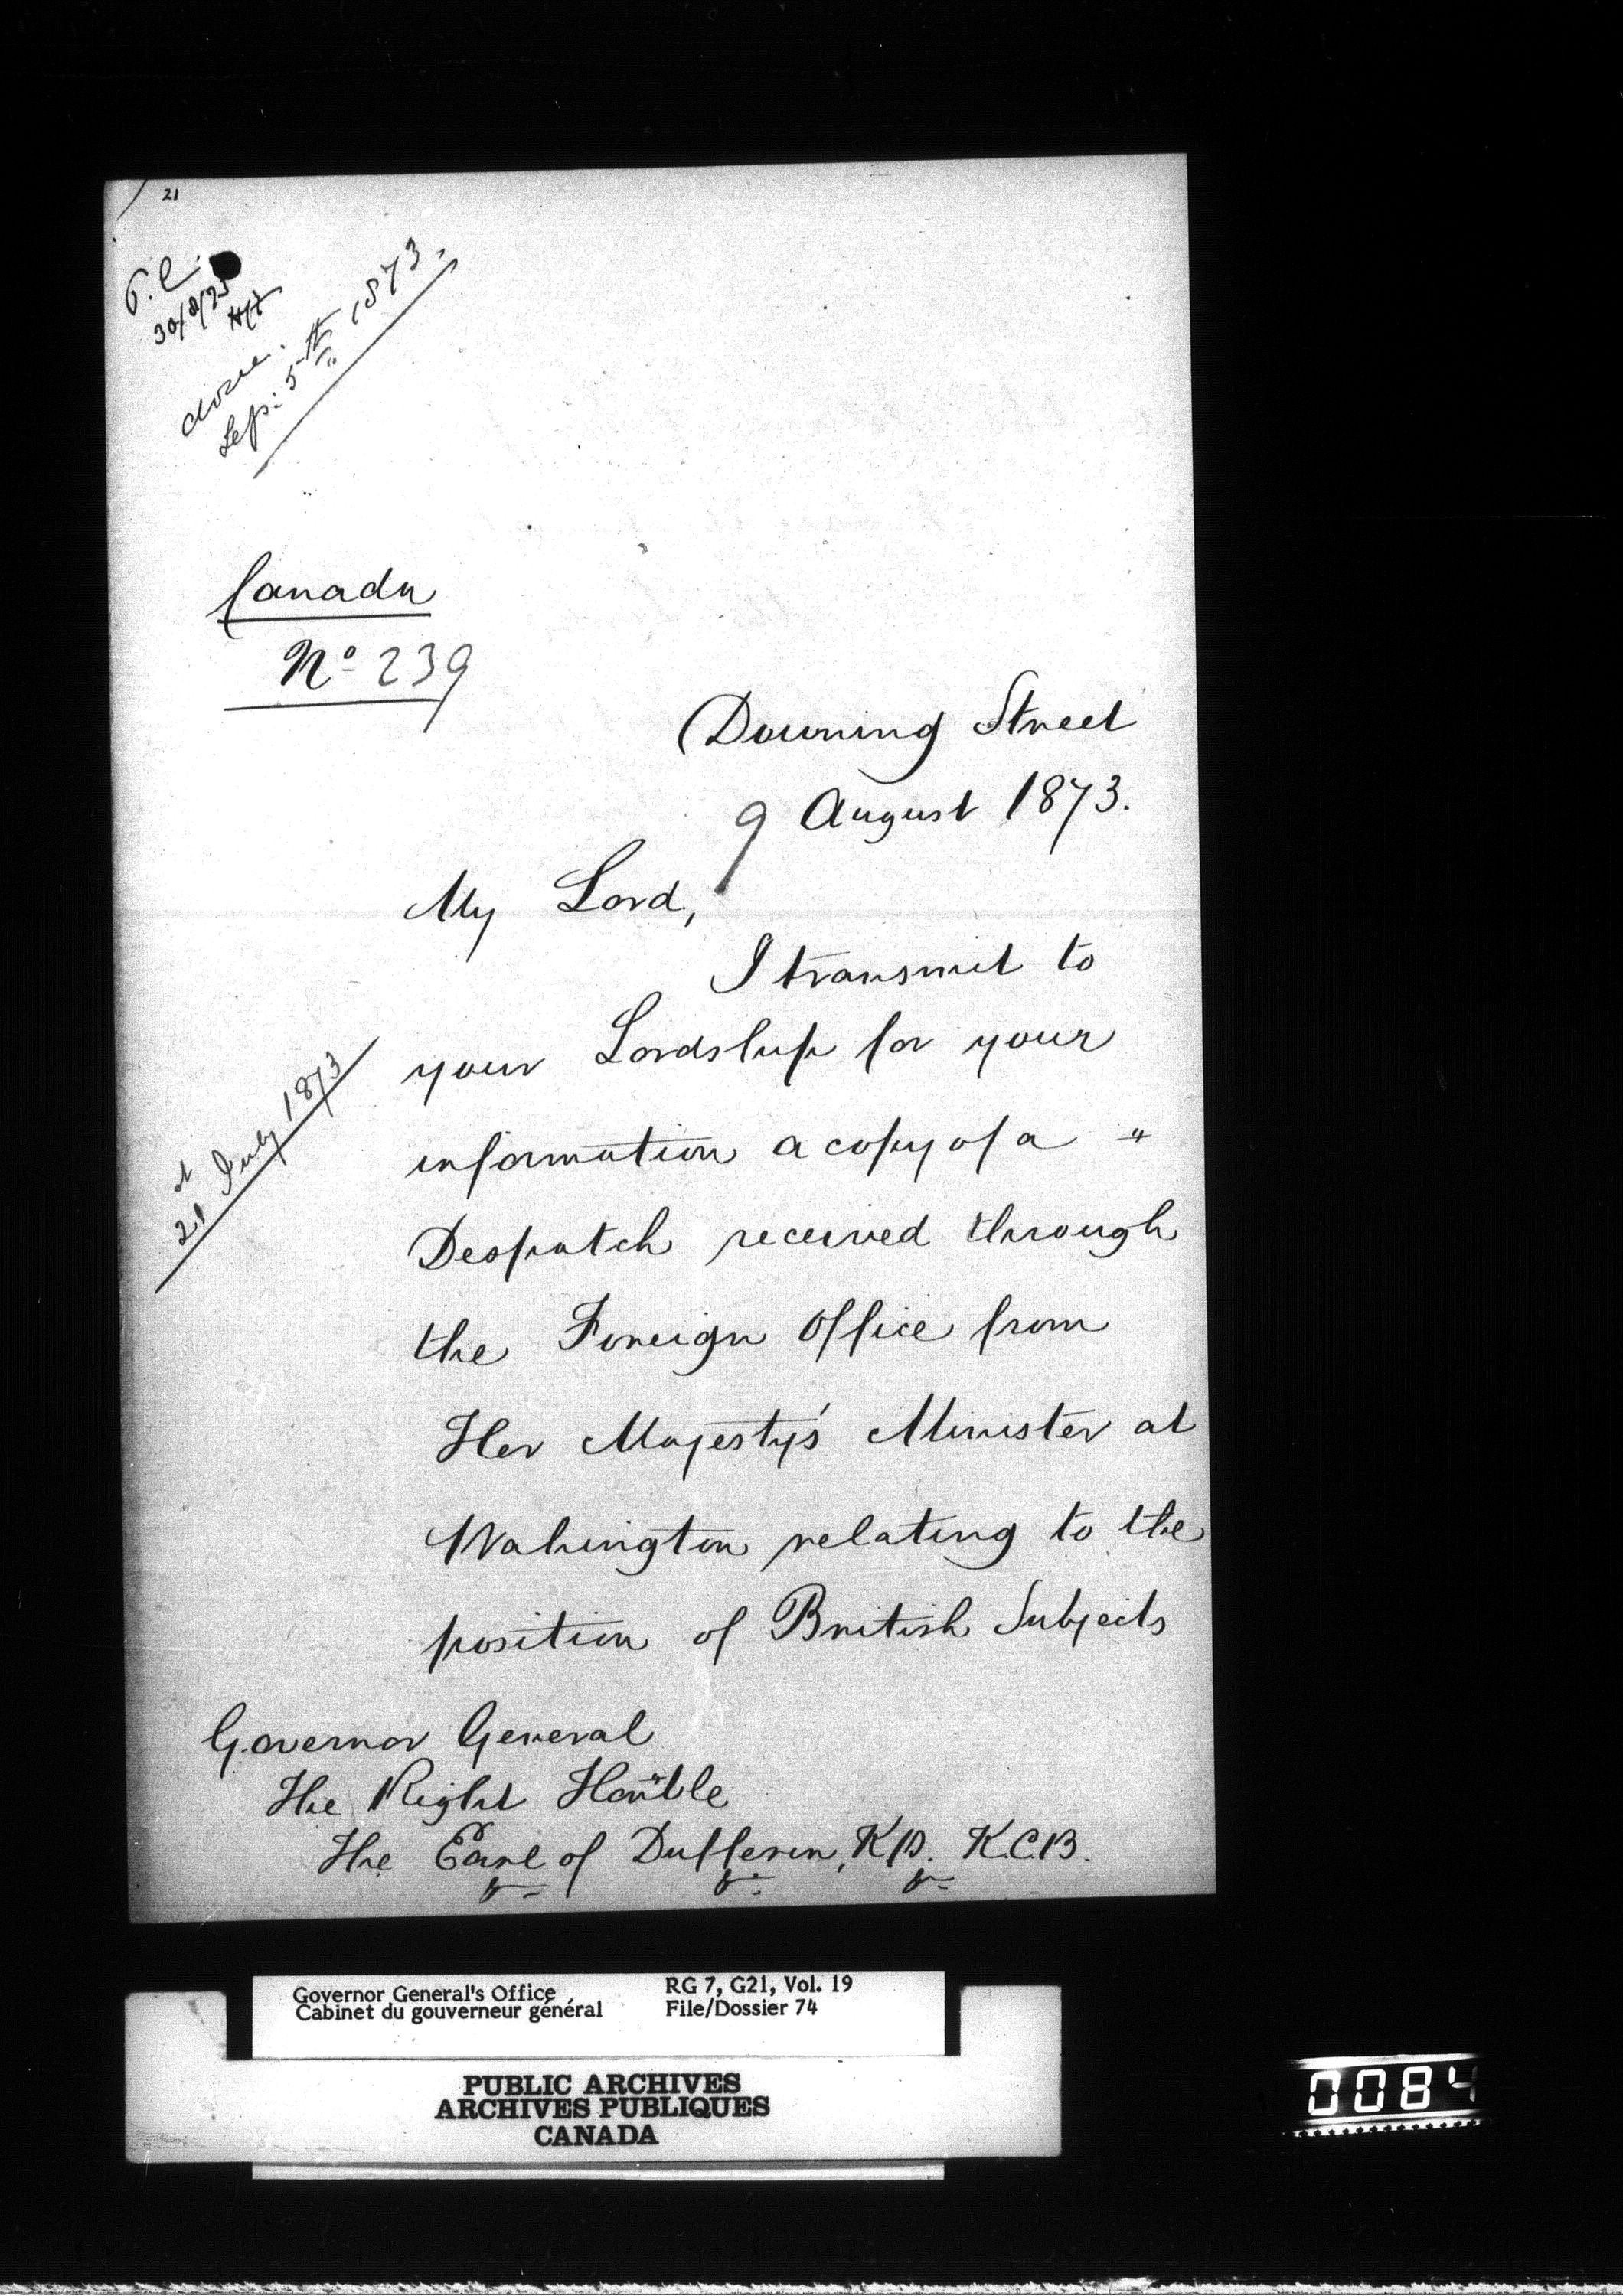 21
P.C.
30/8/73
done.
Sep: 5th 1873.
Canada
No 239
Downing Street
9 August 1873.
My Lord,
I transmit to
your Lordship for your
information a copy of a "
Despatch received through
21st July 1873
the Foreign Office from
Her Majesty's Minister at
Wahington relating to the
position of British Subjects
Governor General
The Right Honble
The Earl of Dufferin, K.P. K.C.B.
&c. &c. &c.
Governor General's Office
Cabinet du gouverneur général
RG 7, G21, Vol. 19
File/Dossier 74
PUBLIC ARCHIVES
ARCHIVES PUBLIQUES
CANADA
0084